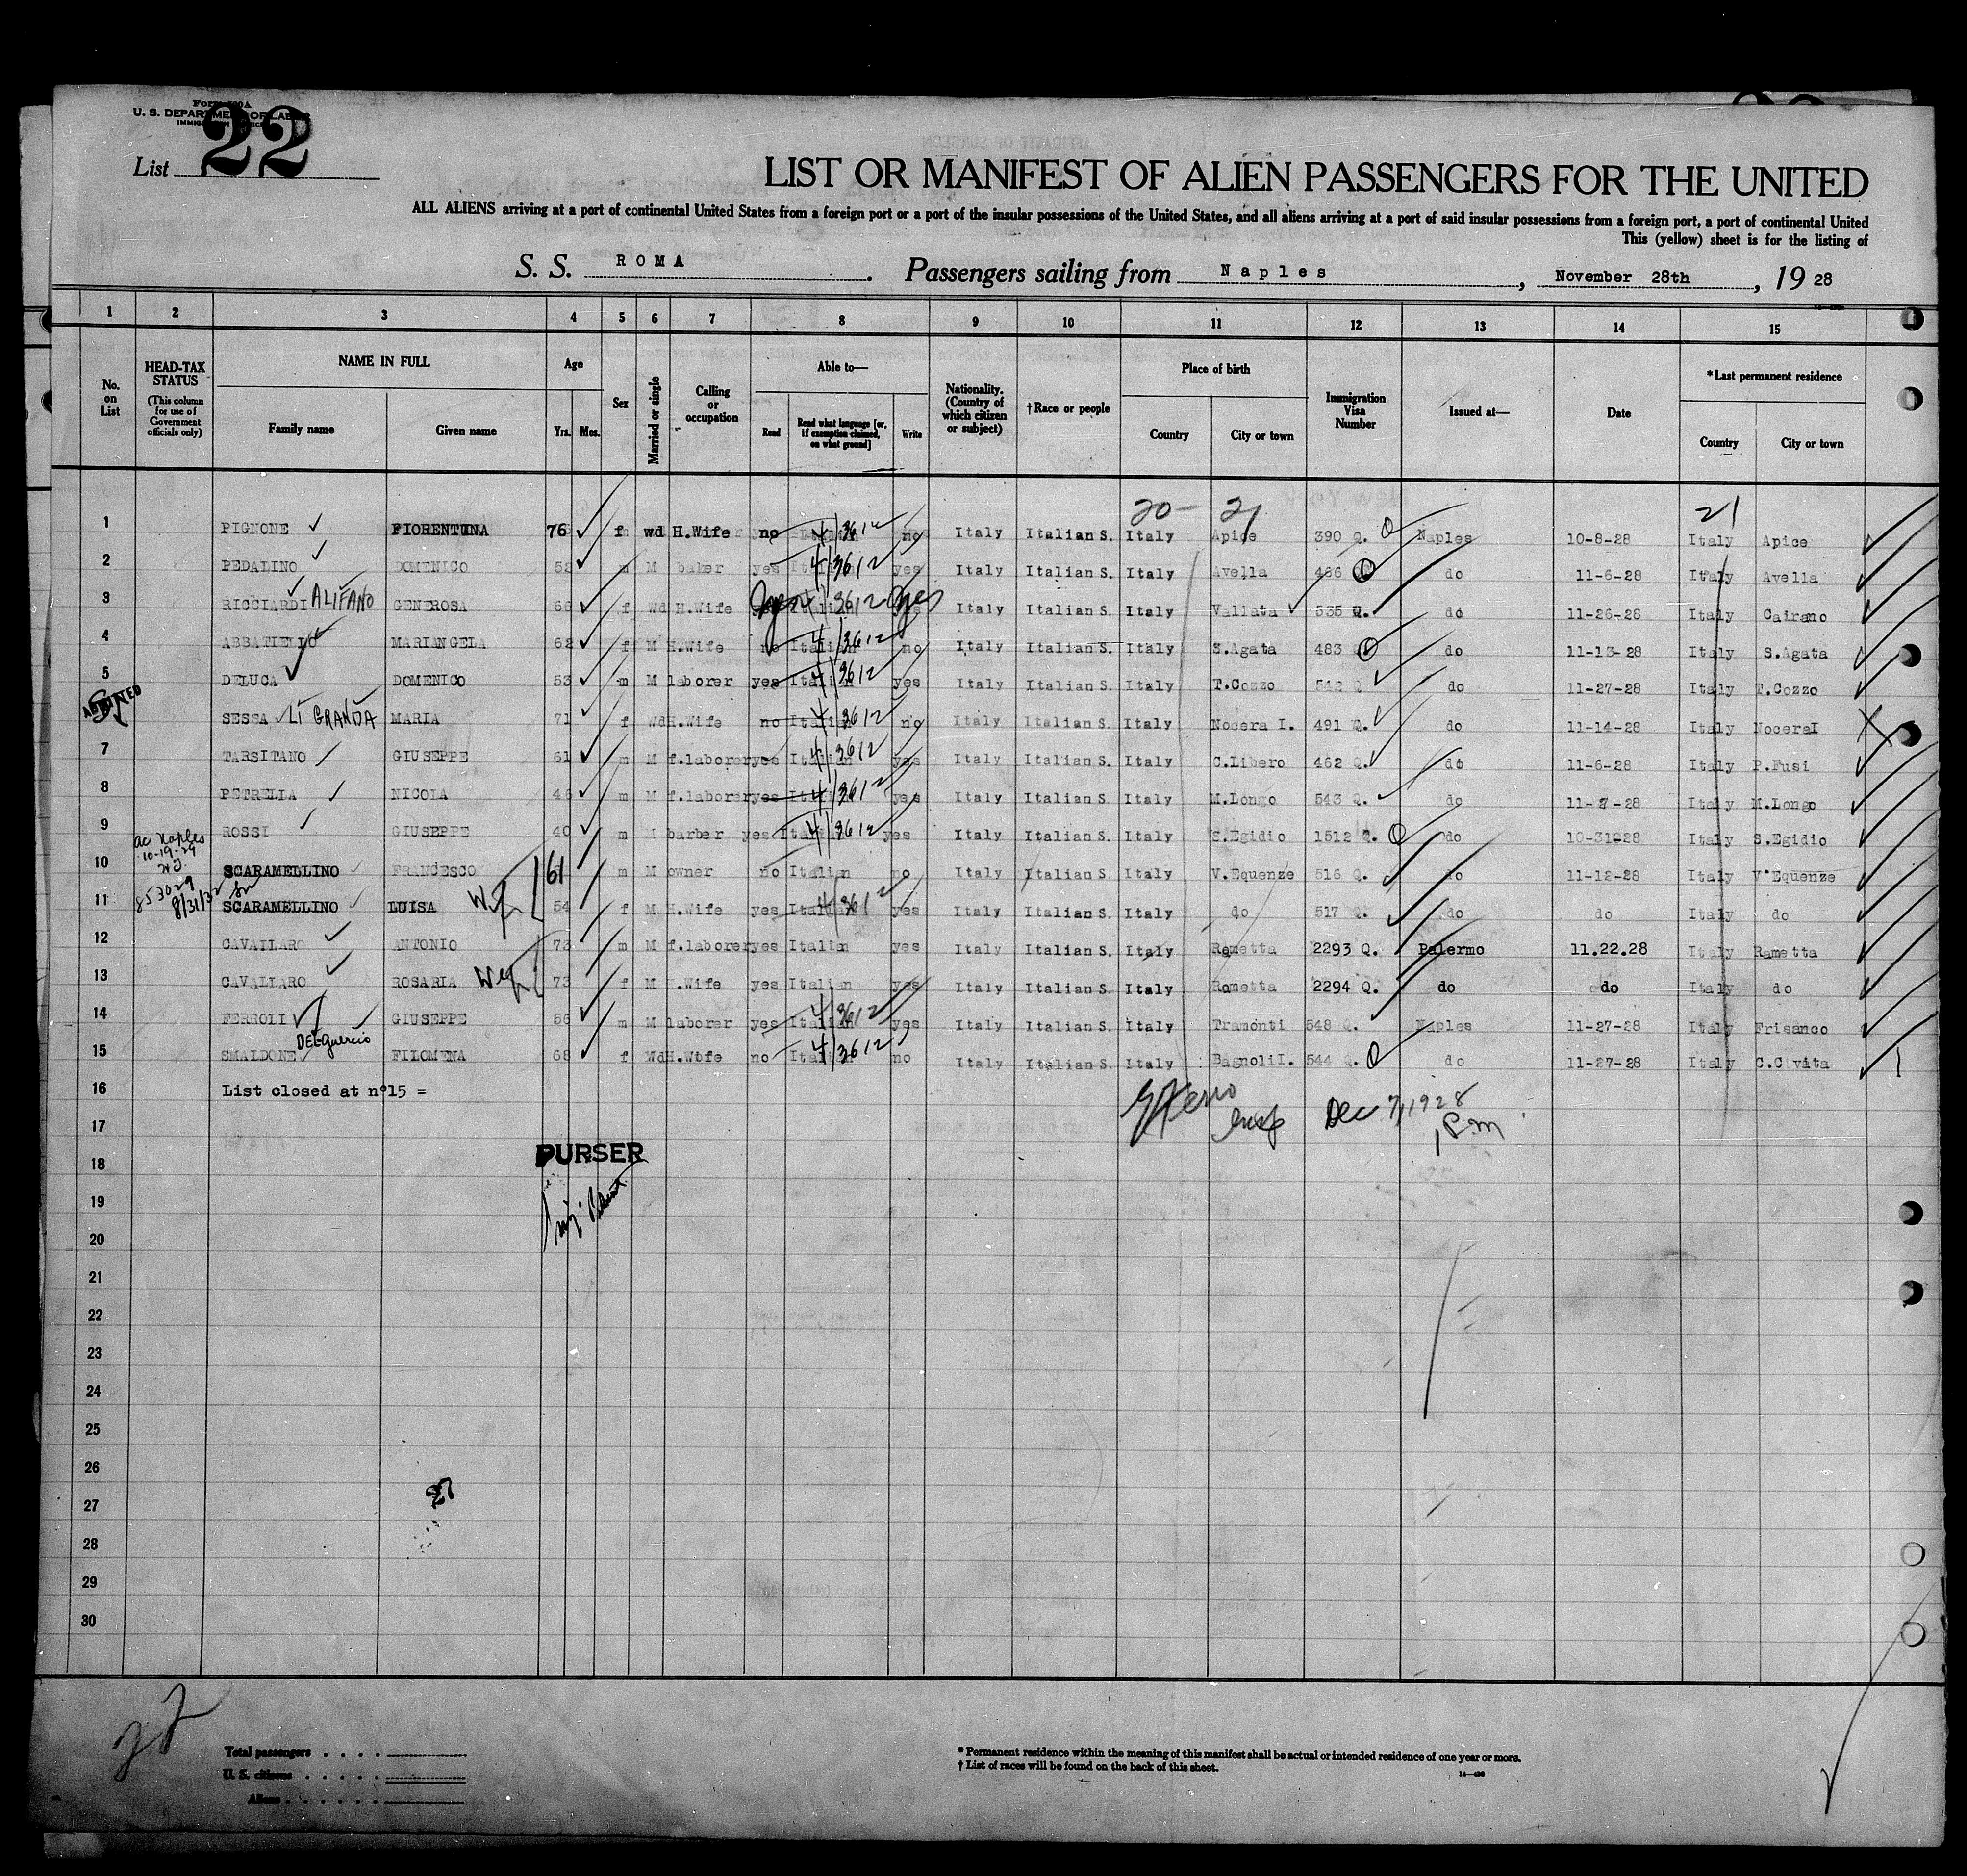 Form 500A
U. S. DEPARTMENT OF LABOR
IMMIGRATION SERVICE
List 22
LIST OR MANIFEST OF ALIEN PASSENGERS FOR THE UNITED
ALL ALIENS arriving at a port of continental United States from a foreign port or a port of the insular possessions of the United States, and all aliens arriving at a port of said insular possessions from a foreign port, a port of continental United
This (yellow) sheet is for the listing of
S. S. ROMA. Passengers sailing from Naples, November 28th, 19 28
1 2 3 4 5 6 7 8 9 10 11 12 13 14 15
No. on List
HEAD-TAX STATUS (This column for use of Government officials only)
NAME IN FULL
Family name Given name
Age
Yrs. Mos.
Sex
Married or single
Calling or occupation
Able to—
Read Read what language [or, if exemption claimed, on what ground] Write
Nationality. (Country of which citizen or subject)
†Race or people
Place of birth
Country City or town
Immigration Visa Number
Issued at—
Date
*Last permanent residence
Country City or town
20- 21 21
1 PIGNONE FIORENTINA 76 f wd H.Wife no 4/3612 no Italy Italian S. Italy Apice 390 Q. Naples 10-8-28 Italy Apice
2 PEDALINO DOMENICO 52 m M baker yes Italian 4/3612 yes Italy Italian S. Italy Avella 466 do 11-6-28 Italy Avella
3 RICCIARDI ALIFANO GENEROSA 66 f Wd H.Wife Italian 4/3612 yes Italy Italian S. Italy Vallata 535 Q. do 11-26-28 Italy Cairano
4 ABBATIELLO MARIANGELA 62 f M H.Wife no Italian 4/3612 no Italy Italian S. Italy S.Agata 483 do 11-13-28 Italy S.Agata
5 DELUCA DOMENICO 53 m M laborer yes Italian 4/3612 yes Italy Italian S. Italy T.Cozzo 542 Q do 11-27-28 Italy T.Cozzo
ADMITTED SESSA LI GRANDA MARIA 71 f Wd H.Wife no Italian 4/3612 no Italy Italian S. Italy Nocera I. 491 Q. do 11-14-28 Italy NoceraI
7 TARSITANO GIUSEPPE 61 m M f.laborer yes Italian 4/3612 yes Italy Italian S. Italy C.Libero 462 Q. do 11-6-28 Italy P.Fusi
8 PETRELLA NICOLA 46 m M f.laborer yes Italian 4/3612 yes Italy Italian S. Italy M.Longo 543 Q. do 11-2-28 Italy M.Longo
9 ROSSI GIUSEPPE 40 m barber yes Italian 4/3612 yes Italy Italian S. Italy S.Egidio 1512 Q. do 10-31-28 Italy S.Egidio
ac Naples
10-19-29
10 SCARAMELLINO FRANCESCO 61 m M owner no Italian no Italy Italian S. Italy V.Equenze 516 Q. do 11-12-28 Italy V.Equenze
853029
8/31/32
11 SCARAMELLINO LUISA Wf 54 f M H.Wife yes Italian 4/3612 yes Italy Italian S. Italy do 517 Q. do do Italy do
12 CAVALLARO ANTONIO 73 m M f.laborer yes Italian yes Italy Italian S. Italy Rametta 2293 Q. Palermo 11.22.28 Italy Rametta
13 CAVALLARO ROSARIA Wf 73 f M H.Wife yes Italian yes Italy Italian S. Italy Rametta 2294 Q. do do Italy do
14 FERROLI GIUSEPPE 56 m M laborer yes Italian 4/3612 yes Italy Italian S. Italy Tramonti 548 Q. Naples 11-27-28 Italy Frisanco
DELGuercio
15 SMALDONE FILOMENA 68 f Wd H.Wofe no Italian 4/3612 no Italy Italian S. Italy BagnoliI. 544 Q. do 11-27-28 Italy C.Civita
16 List closed at nº15 =
Insp Dec 7, 1928
1 P.m
17
PURSER
18
19
20
21
22
23
24
25
26
27
28
29
30
Total passengers . . . .
U. S. citizens . . . . .
Aliens . . . . . .
* Permanent residence within the meaning of this manifest shall be actual or intended residence of one year or more.
† List of races will be found on the back of this sheet.
14—430